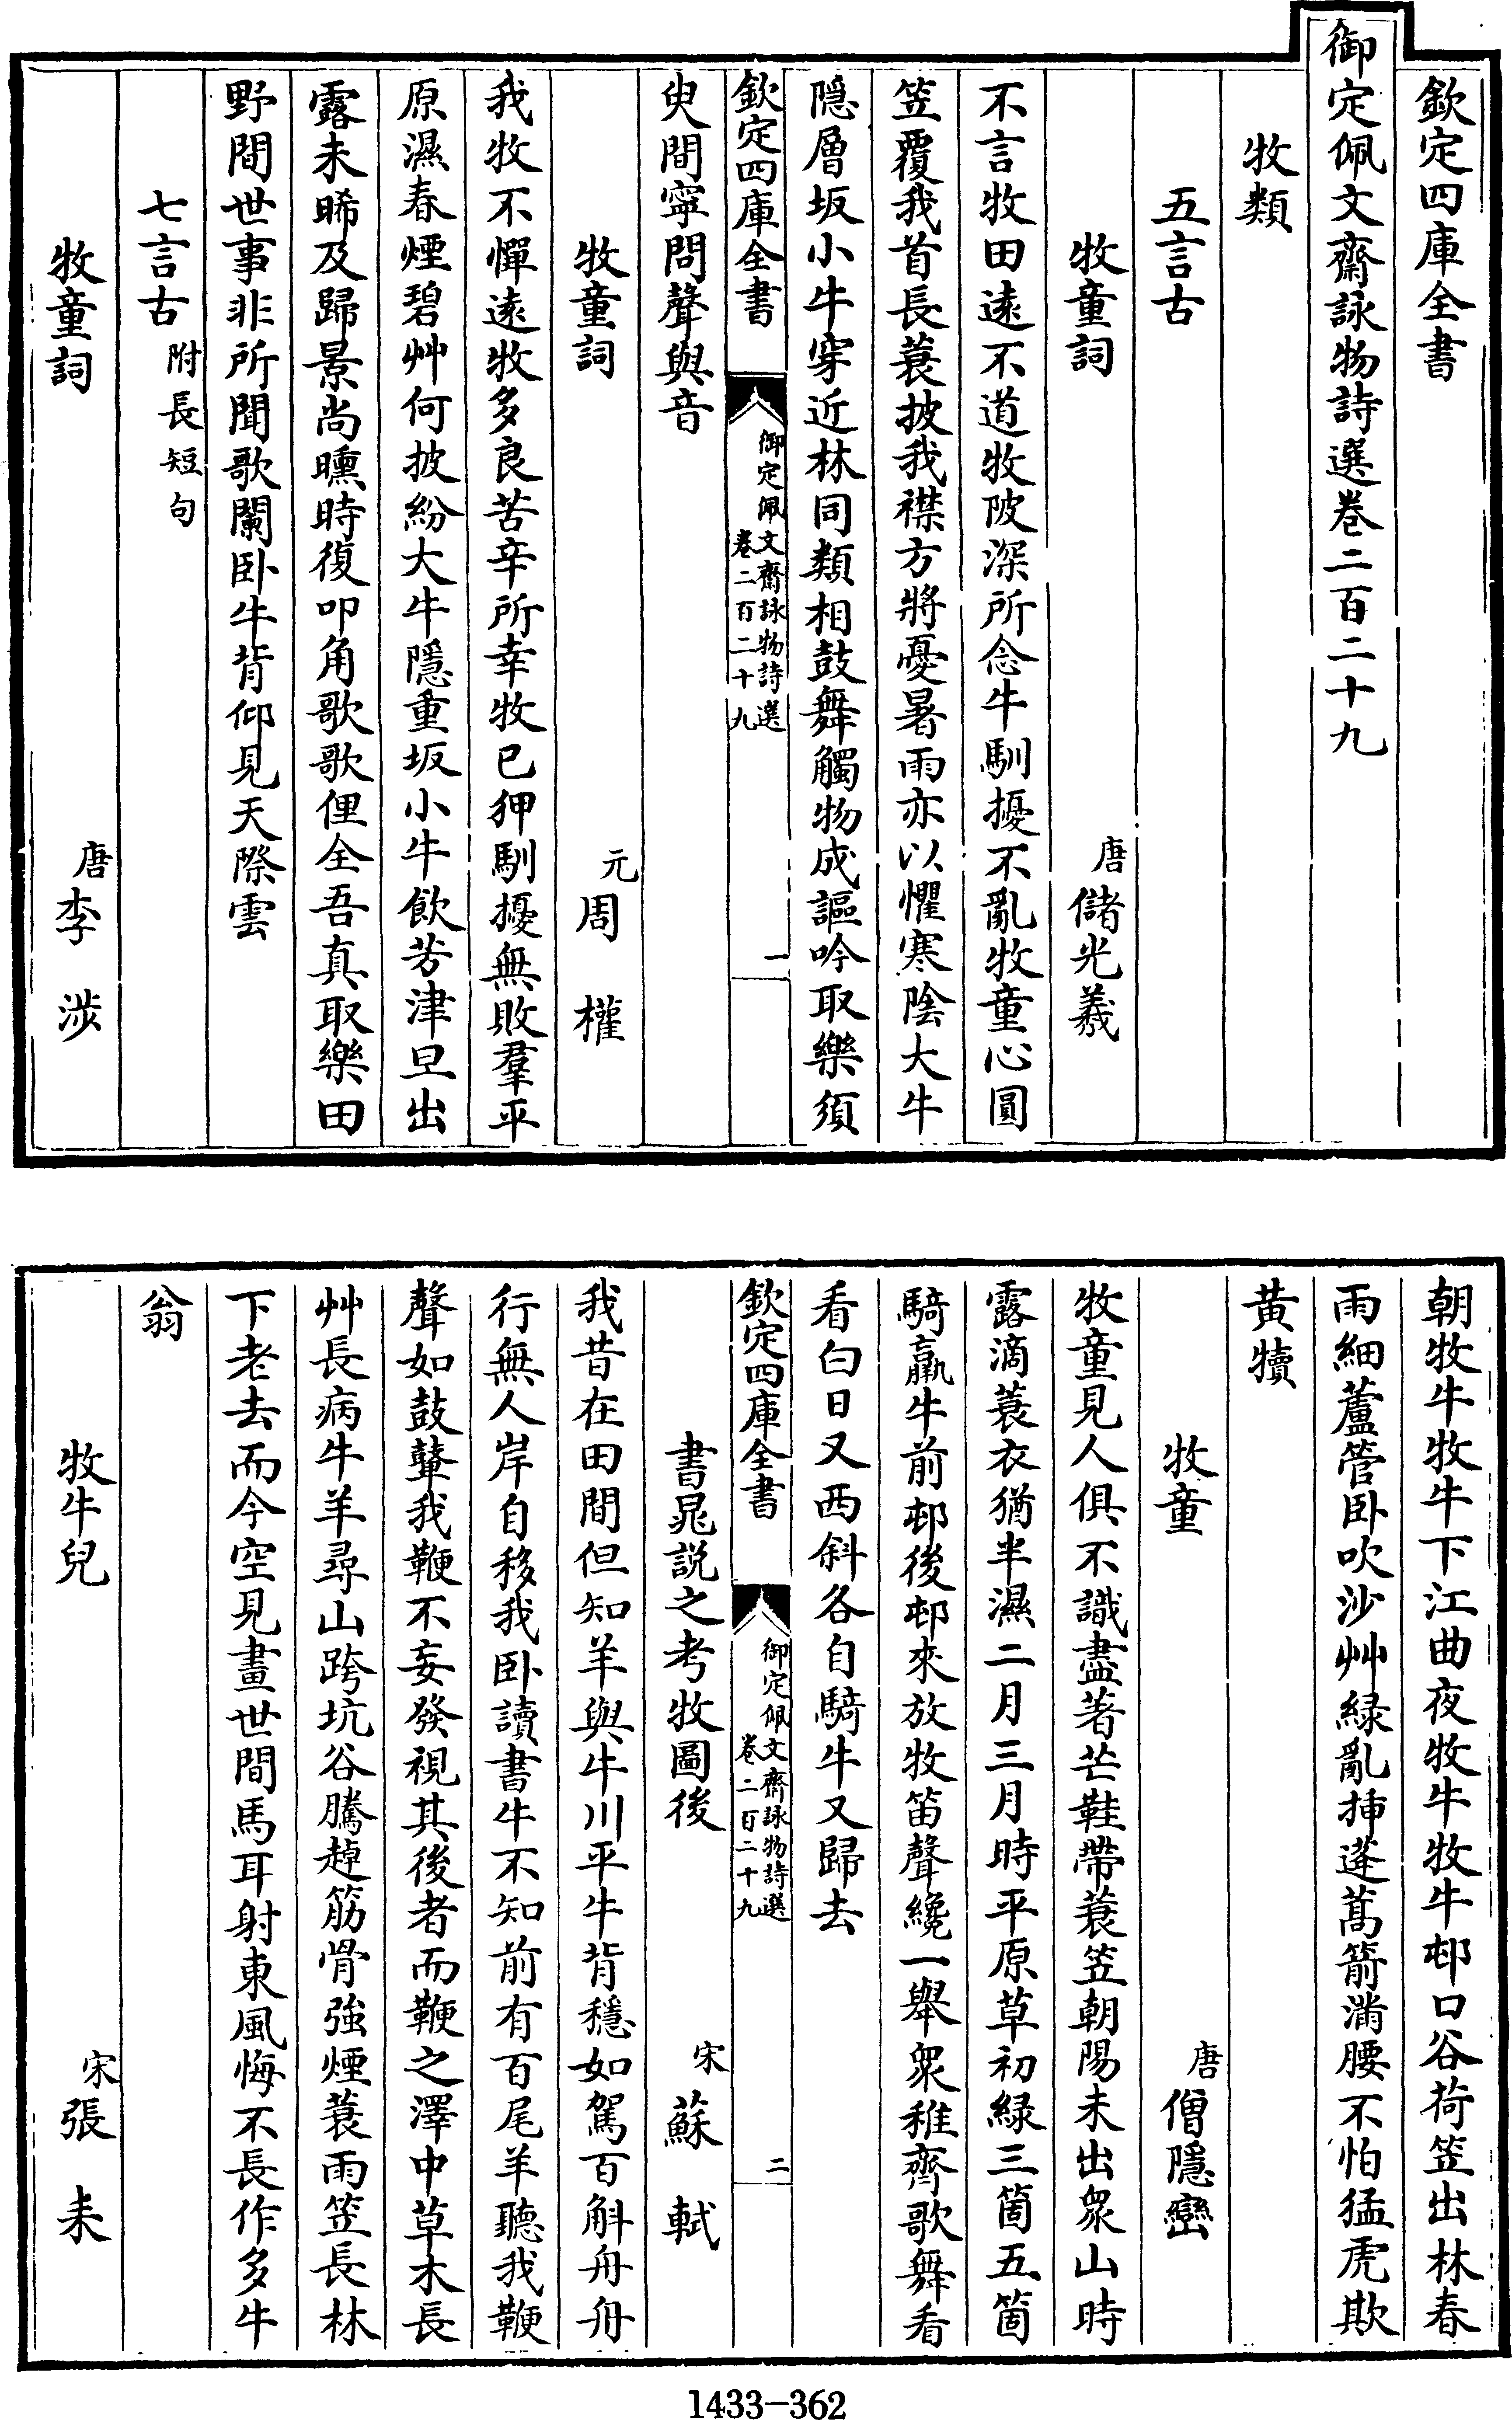 欽定四庫全書
御定佩文齋詠物詩選巻二百二十九
牧類
五言古
牧童詞 唐 儲光羲
不言牧田逺不道牧陂深所念牛馴擾不亂牧童心圓
笠覆我首長蓑披我襟方將憂暑雨亦以懼寒陰大牛
隠層坂小牛穿近林同類相鼓舞觸物成謳吟取樂須
欽定四庫全書 御定佩文齋詠物詩選 巻二百二十九 一
臾間寧問聲與音
牧童詞 元 周權
我牧不憚逺牧多良苦辛所幸牧已狎馴擾無敗羣平
原濕春煙碧艸何披紛大牛隠重坂小牛飲芳津旦出
露未晞及歸景尚曛時復叩角歌歌俚全吾真取樂田
野間世事非所聞歌闌卧牛背仰見天際雲
七言古 附長短句
牧童詞 唐 李涉
朝牧牛牧牛下江曲夜牧牛牧牛邨口谷荷笠出林春
雨細蘆管卧吹沙艸緑亂揷蓬蒿箭滿腰不怕猛虎欺
黄犢
牧童 唐 僧隠巒
牧童見人俱不識盡著芒鞋帶蓑笠朝陽未出衆山時
露滴蓑衣猶半濕二月三月時平原草初緑三箇五箇
騎羸牛前邨後邨來放牧笛聲纔一舉衆稚齊歌舞看
看白日又西斜各自騎牛又歸去
欽定四庫全書 御定佩文齋詠物詩選 巻二百二十九 二
書晁説之考牧圖後 宋 蘇軾
我昔在田間但知羊與牛川平牛背穩如駕百斛舟舟
行無人岸自移我卧讀書牛不知前有百尾羊聽我鞭
聲如鼓鼙我鞭不妄發視其後者而鞭之澤中草木長
艸長病牛羊尋山跨坑谷騰趠筋骨強煙蓑雨笠長林
下老去而今空見畫世間馬耳射東風悔不長作多牛
翁
牧牛兒 宋 張耒
1433-362